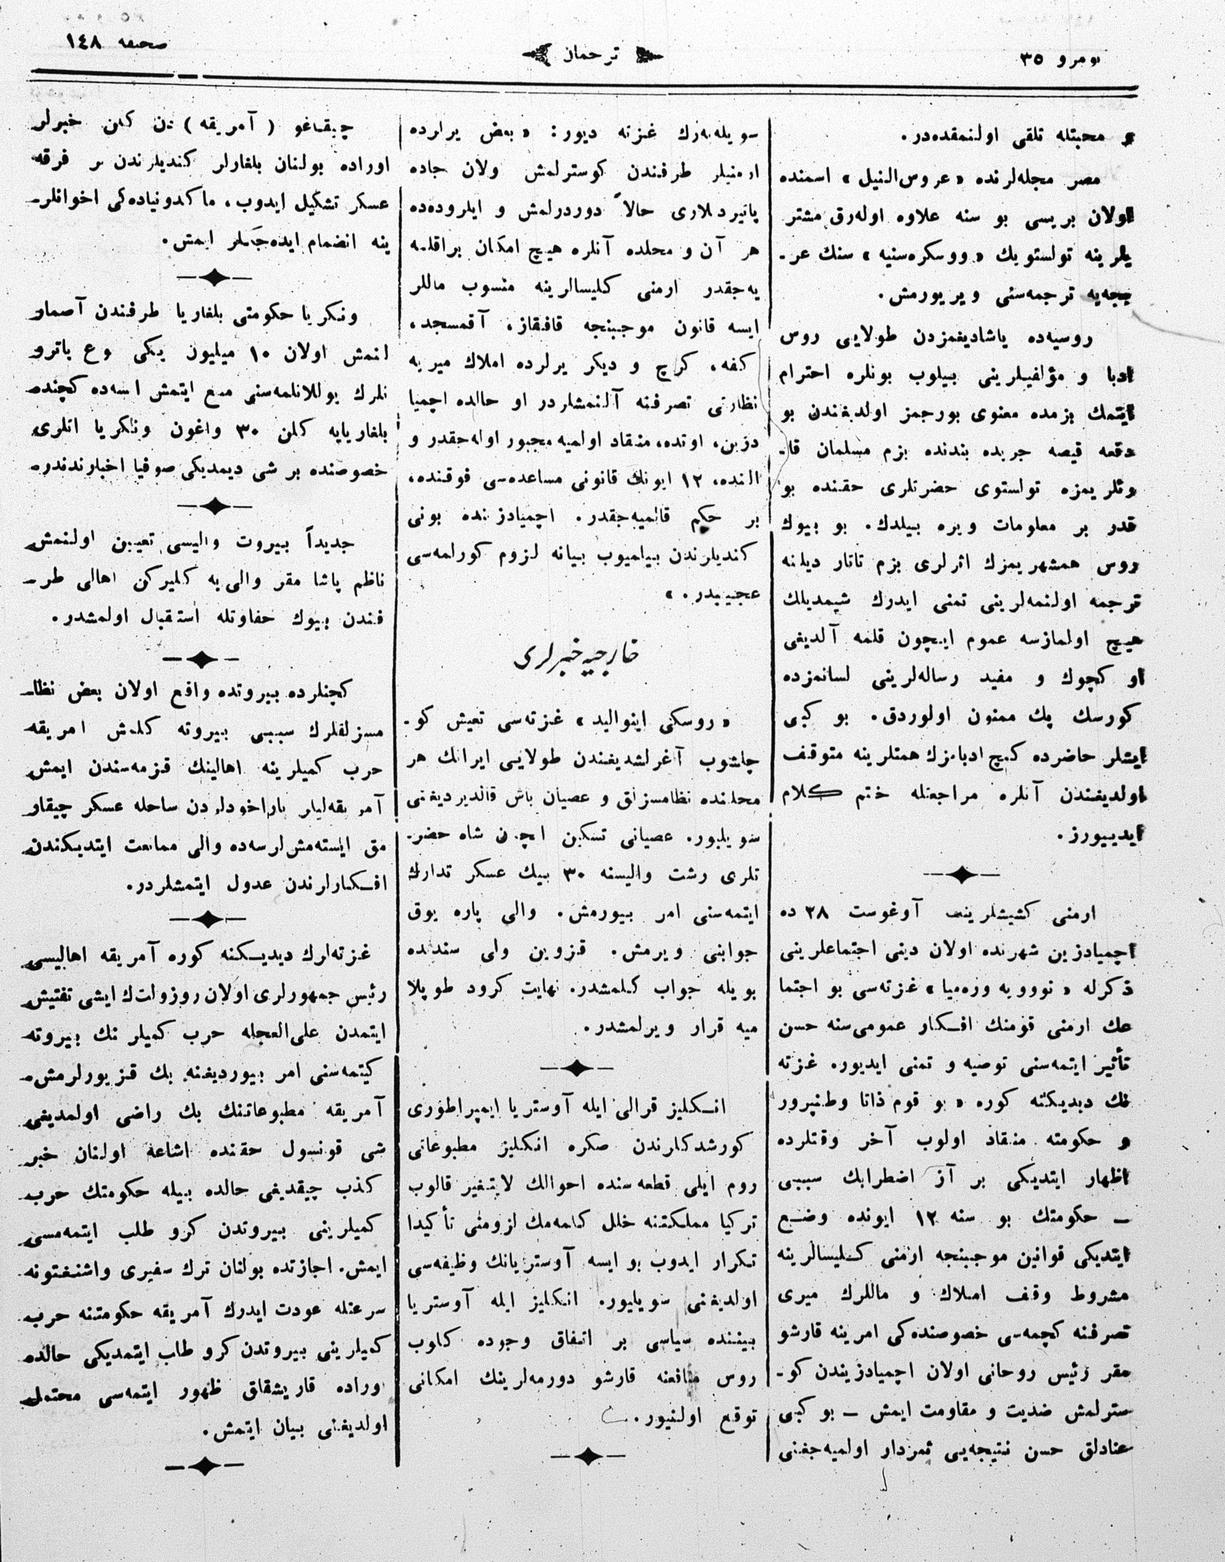 نومرو ٣٥
ترجمان
صحيفه ١٤٨
و محبتله تلقى اولنمقده‌در.
مصر مجله‌لرنده «عروس‌النيل» اسمنده
اولان بريسى بو سنه علاوه اوله‌رق مشتر
يلرينه تولستويك «ووسكره‌سنيه» سنك عر-
بجه‌يه ترجمه‌سنى ويريورمش.
روسيه‌ده ياشاديغمزدن طولايى روس
ادبا و مؤلفيلرينى بيلوب بونلره احترام
ايتمك بزمده معنوى بورجمز اولديغندن بو
دفعه قيصه جريده بندنده بزم مسلمان قا-
رئلريمزه تولستوى حضرتلرى حقنده بو
قدر بر معلومات ويره بيلدك. بو بيوك
روس همشهريمزك اثرلرى بزم تاتار ديلنه
ترجمه اولنمه‌لرينى تمنى ايدرك شيمديلك
هيچ اولمازسه عموم ايچون قلمه آلديغى
او كچوك و مفيد رساله‌لرينى لسانمزده
كورسك پك ممنون اولوردق. بو كبى
ايشلر حاضرده كنج ادبامزك همتلرينه متوقف
اولديغندن آنلره مراجعتله ختم كلام
ايدييورز.
ارمنى كشيشلرينك آوغوست ٢٨ ده
اچميادزين شهرنده اولان دينى اجتماعلرينى
ذكرله «نووويه وره‌ميا» غزته‌سى بو اجتما
عك ارمنى قومنك افكار عموميه‌سنه حسن
تأثير ايتمه‌سنى توصيه و تمنى ايديور. غزته
نك ديديكنه كوره «بو قوم ذاتا وطنپرور
و حكومته منقاد اولوب آخر وقتلرده
اظهار ايتديكى بر آز اضطرابك سببى
— حكومتك بو سنه ١٢ ايونده وضع
ايتديكى قوانين موجبنجه ارمنى كليسالرينه
مشروط وقف املاك و ماللرك ميرى
تصرفنه كچمه‌سى خصوصنده‌كى امرينه قارشو
مقر رئيس روحانى اولان اچميادزيندن كو-
سترلمش ضديت و مقاومت ايمش — بو كبى
عنادلق حسن نتيجه‌يى ثمردار اولميه‌جغنى
سويله‌يه‌رك غزته ديور: «بعض يرلرده
ارمنيلر طرفندن كوسترلمش ولان جاده
پاتيردىلارى حالاً دوردرلمش و ايلروده‌ده
هر آن و محلده آنلره هيچ امكان براقلمه
يه‌جقدر ارمنى كليسالرينه منسوب ماللر
ايسه قانون موجبنجه قافقاز، آقمسجد،
كفه، كرچ و ديكر يرلرده املاك ميريه
نظارتى تصرفنه آلنمشلردر او حالده اچميا
دزين، اونده، منقاد اولميه مجبور اوله‌جقدر و
النده، ١٢ ايونك قانونى مساعده‌سى فوقنده،
بر حكم قالميه‌جقدر. اچميادزنده بونى
كنديلرندن بيلميوب بيانه لزوم كورلمه‌سى
عجيبدر.»
خارجيه خبرلرى
«روسكى اينواليد» غزته‌سى تعيش كو-
چلشوب آغرلشديغندن طولايى ايرانك هر
محلنده نظامسزلق و عصيان باش قالديرديغنى
سويليور. عصيانى تسكين ايچون شاه حضر-
تلرى رشت واليسنه ٣٠ بيك عسكر تدارك
ايتمه‌سنى امر بيورمش. والى پاره يوق
جوابنى ويرمش. قزوين والى سندنده
بويله جواب كلمشدر. نهايت كرود طوپلا
ميه قرار ويرلمشدر.
انكليز قرالى ايله آوستريا ايمپراطورى
كورشدكلرندن صكره انكليز مطبوعاتى
روم ايلى قطعه‌سنده احوالك لايتغير قالوب
تركيا مملكتنه خلل كلمه‌مك لزومنى تأكيدا
تكرار ايدوب بو ايسه آوستريانك وظيفه‌سى
اولديغنى سويليور. انكليز ايله آوستريا
بيننده سياسى بر اتفاق وجوده كلوب
روس منافعنه قارشو دورمه‌لرينك امكانى
توقع اولنيور.
چيقاغو (آمريقه) دن كلن خبرلر
اوراده بولنان بلغارلر كنديلرندن بر فرقه
عسكر تشكيل ايدوب، ماكدونياده‌كى اخوانلر-
ينه انضمام ايده‌جكلر ايمش.
ونكريا حكومتى بلغاريا طرفندن آصمار
لنمش اولان ١٠ ميليون يكى نوع پاترو
نلرك يوللانلمه‌سنى منع ايتمش ايسه‌ده كچنده
بلغاريايه كلن ٣٠ واغون ونكريا اتلرى
خصوصنده بر شى ديمديكى صوفيا اخبارندندر-
جديداً بيروت واليسى تعيين اولنمش
ناظم پاشا مقر والى‌يه كليركن اهالى طر-
فندن بيوك حفاوتله استقبال اولمشدر.
كچنلرده بيروتده واقع اولان بعض نظا-
مسزلقلرك سببى بيروته كلمش امريقه
حرب كميلرينه اهالينك قزمه‌سندن ايمش
آمريقه‌ليلر پاراخودلردن ساحله عسكر چيقار
مق ايسته‌مش‌لرسه‌ده والى ممانعت ايتديكندن
افكارلرندن عدول ايتمشلردر.
غزته‌لرك ديديكنه كوره آمريقه اهاليسى
رئيس جمهورلرى اولان روزولت‌ك ايشى تفتيش
ايتمدن على‌العجله حرب كميلرنك بيروته
كيتمه‌سنى امر بيورديغنه پك قزيورلرمش-
آمريقه مطبوعاتنك پك راضى اولمديغى
شى قونسول حقنده اشاعة اولنان خبر
كذب چيقديغى حالده بيله حكومتك حرب
كميلرينى بيروتدن كرو طلب ايتمه‌مسى
ايمش. اجازتده بولنان ترك سفيرى واشنغتونه
سرعتله عودت ايدرك آمريقه حكومتنه حرب
كميلرينى بيروتدن كرو طلب ايتمديكى حالده
اوراده قاريشقلق ظهور ايتمه‌سى محتمل
اولديغنى بيان ايتمش.